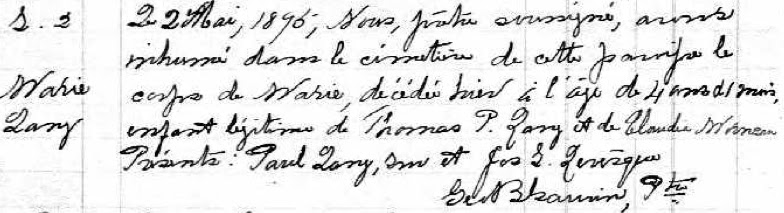 S. 2
Marie
Lang
Le 2 Mai, 1895, Nous, prêtre soussigné, avons
inhumé dans le cimetière de cette paroisse le
corps de Marie, décédée hier à l'âge de 4 ans et 1 mois
enfant légitime de Thomas P. Lang et de Claudia Morneau
Présents: Paul Lang, sm et Jos L. Levesque
Ptre